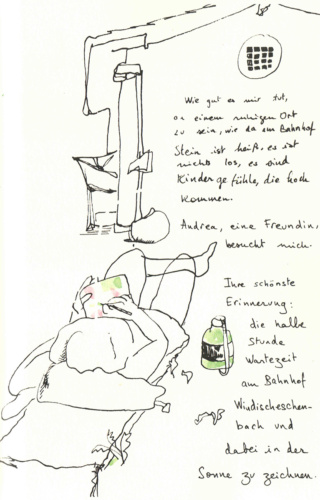 Wie gut es mir tut,
an einem ruhigen Ort
zu sein, wie da am Bahnhof
Stein ist heiß, es ist
nichts los, es sind
Kindergefühle, die hoch
kommen.
Andrea, eine Freundin,
besucht mich.
Ihre schönste
Erinnerung:
die halbe
Stunde
Wartezeit
am Bahnhof
Windischeschen-
bach und
dabei in der
Sonne zu zeichnen.